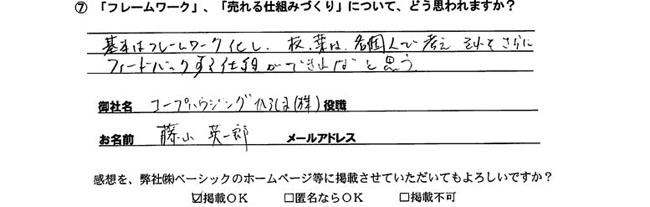 ⑦ 「フレームワーク」、「売れる仕組みづくり」について、どう思われますか？
基本はフレームワーク化し、枝、葉は、各個人で考え それをさらに
フィードバックする仕組ができればと思う
御社名 コープハウジングひろしま(株) 役職
お名前 藤山 英一郎 メールアドレス
感想を、弊社㈱ベーシックのホームページ等に掲載させていただいてもよろしいですか？
☑掲載ＯＫ □匿名ならＯＫ □掲載不可